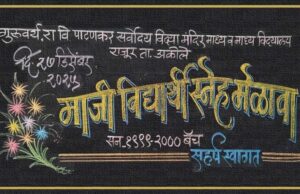 गुरुवर्य रा वि पाटणकर सर्वोदय विद्या मंदिर माध्य व उच्च माध्य विद्यालय
राजूर ता. अकोले
दि. २७ डिसेंबर
२०२५
माजी विद्यार्थी स्नेहमेळावा
सन-१९९९-२००० बॅच
सहर्ष स्वागत